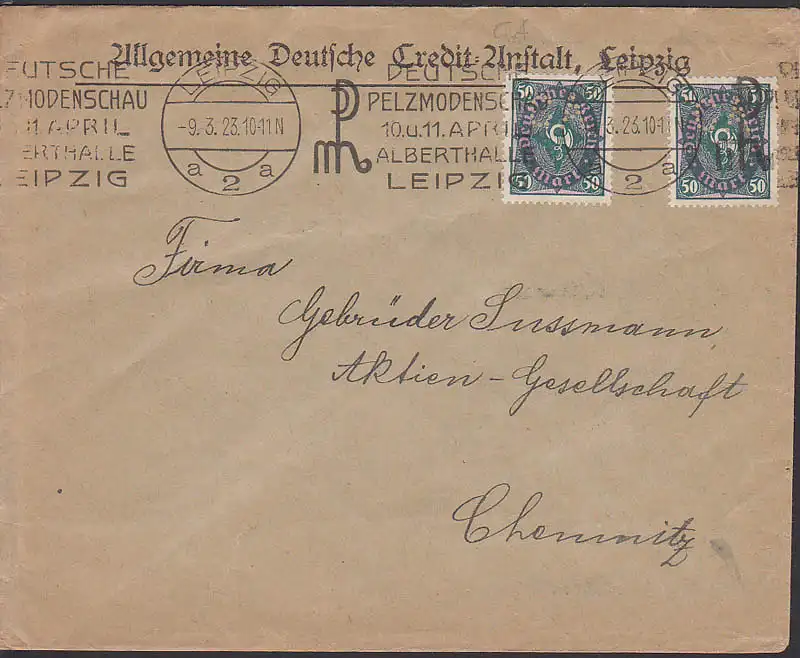 CA
Allgemeine Deutsche Credit-Anstalt, Leipzig
EUTSCHE
LZMODENSCHAU
11. APRIL
ERTHALLE
LEIPZIG
LEIPZIG
-9.3.23.10-11 N
a 2 a
DEUTSCH
PELZMODENSCH
10.u.11. APRI
ALBERTHALLE
LEIPZIG
50 50
Deutsches Reich
Mark
50 50
3.23.10-1
2 a
50 50
Deutsches Reich
Mark
50 50
Firma
Gebrüder Sussmann
Aktien-Gesellschaft
Chemnitz